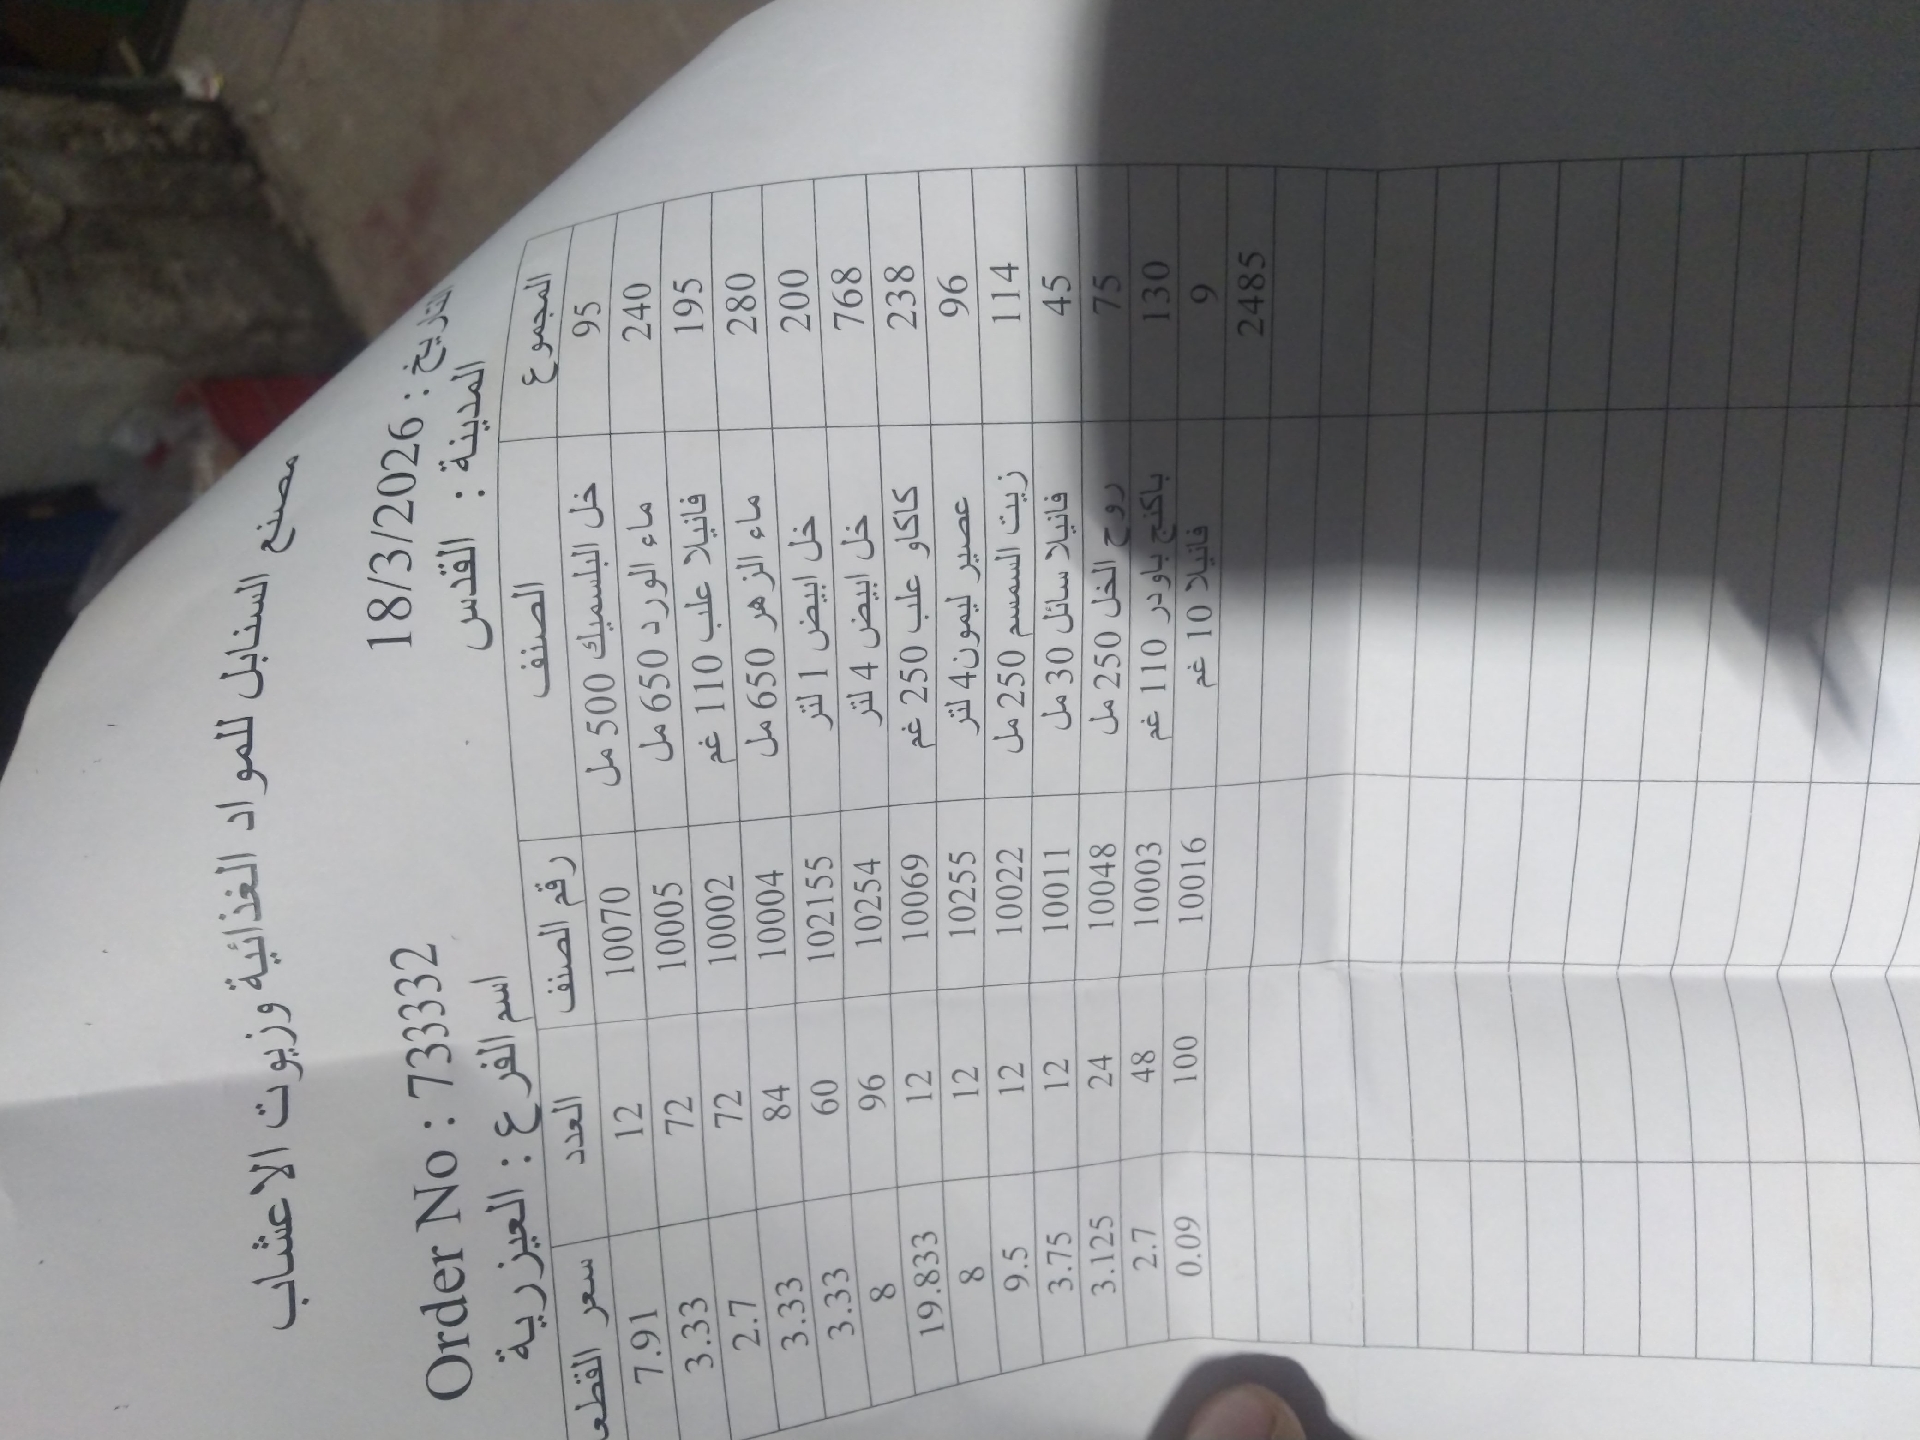 مصنع السنابل للمواد الغذائية وزيوت الاعشاب
Order No : 73332 18/3/2026 : التاريخ
اسم الفرع : العيزرية المدينة : القدس
سعر القطعة العدد رقم الصنف الصنف المجموع
7.91 12 10070 خل البلسميك 500 مل 95
3.33 72 10005 ماء الورد 650 مل 240
2.7 72 10002 فانيلا علب 110 غم 195
3.33 84 10004 ماء الزهر 650 مل 280
3.33 60 102155 خل ابيض 1 لتر 200
8 96 10254 خل ابيض 4 لتر 768
19.833 12 10069 كاكاو علب 250 غم 238
8 12 10255 عصير ليمون4 لتر 96
9.5 12 10022 زيت السمسم 250 مل 114
3.75 12 10011 فانيلا سائل 30 مل 45
3.125 24 10048 روح الخل 250 مل 75
2.7 48 10003 باكنج باودر 110 غم 130
0.09 100 10016 فانيلا 10 غم 9
2485